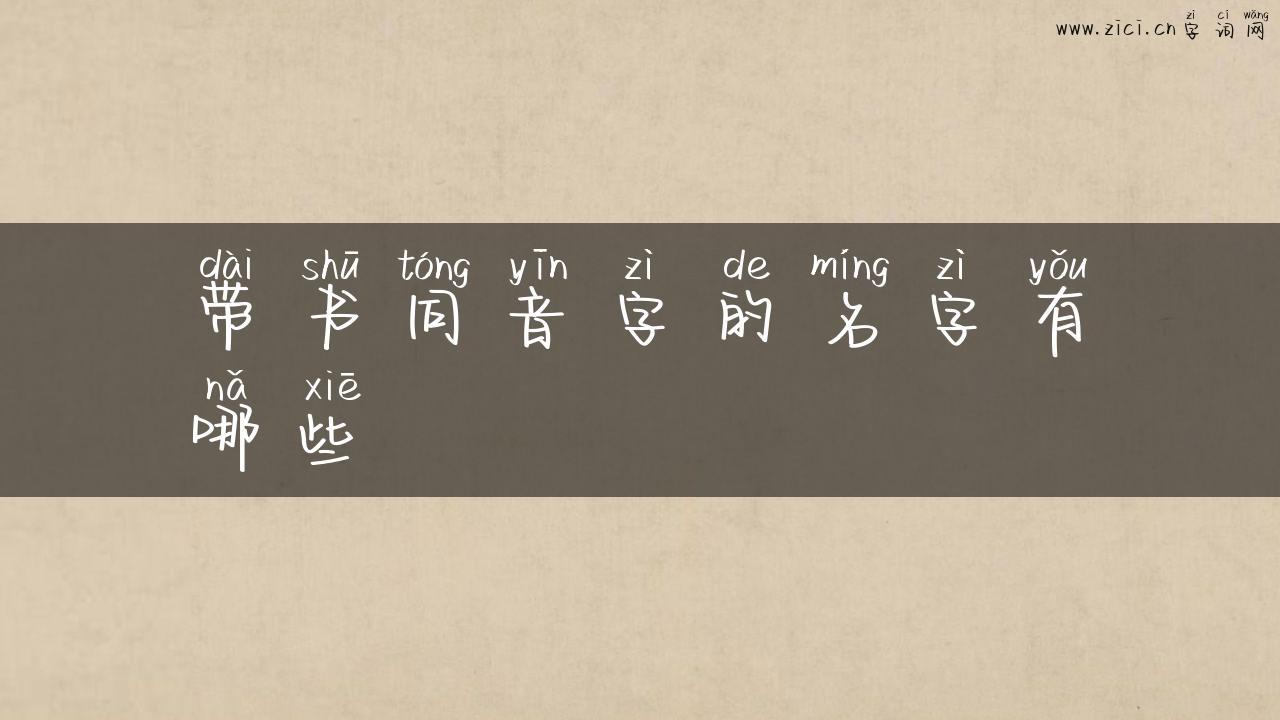 zì cí wǎng
www.zici.cn 字词网
dài shū tóng yīn zì de míng zì yǒu
带书同音字的名字有
nǎ xiē
哪些